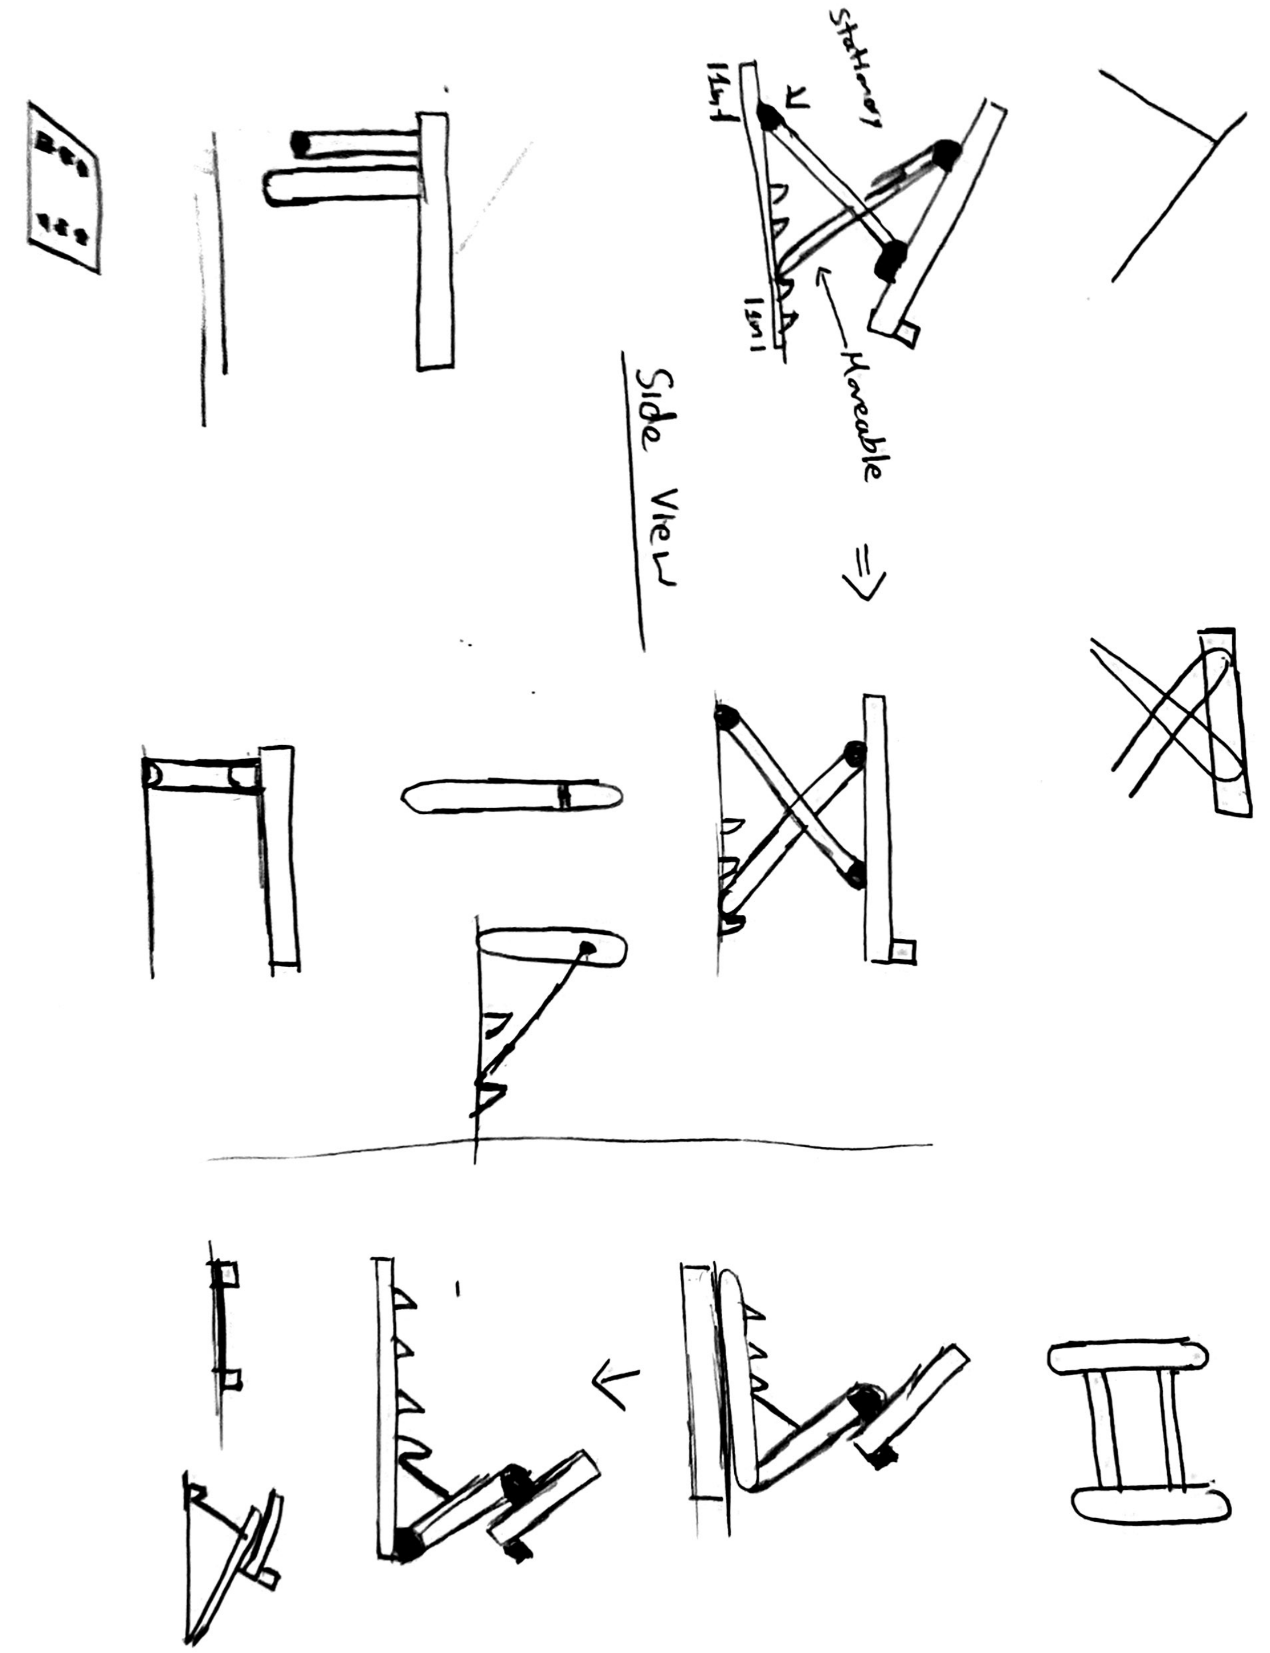 Stationary
Moveable
Side View